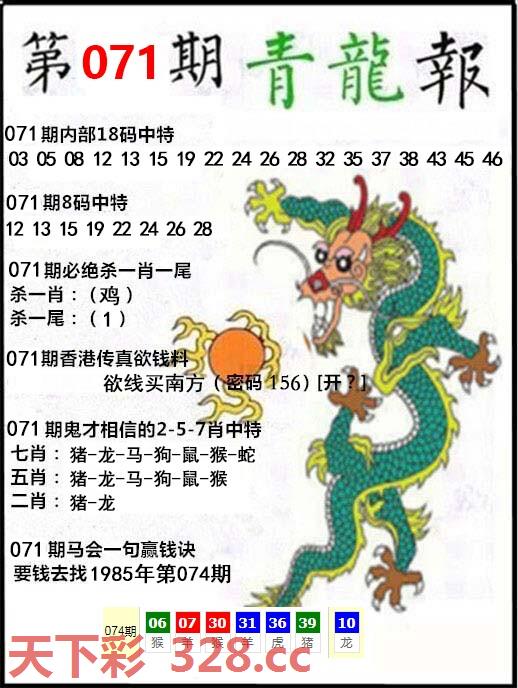 第071期青龍報
071期内部18码中特
03 05 08 12 13 15 19 22 24 26 28 32 35 37 38 43 45 46
071期8码中特
12 13 15 19 22 24 26 28
071期必绝杀一肖一尾
杀一肖：（鸡）
杀一尾：（1）
071期香港传真欲钱料
欲线买南方（密码156）[开？]
071期鬼才相信的2-5-7肖中特
七肖：猪-龙-马-狗-鼠-猴-蛇
五肖：猪-龙-马-狗-鼠-猴
二肖：猪-龙
071期马会一句赢钱诀
要钱去找1985年第074期
074期 06 07 30 31 36 39 10
猴 羊 猴 羊 虎 猪 龙
天下彩 328.cc